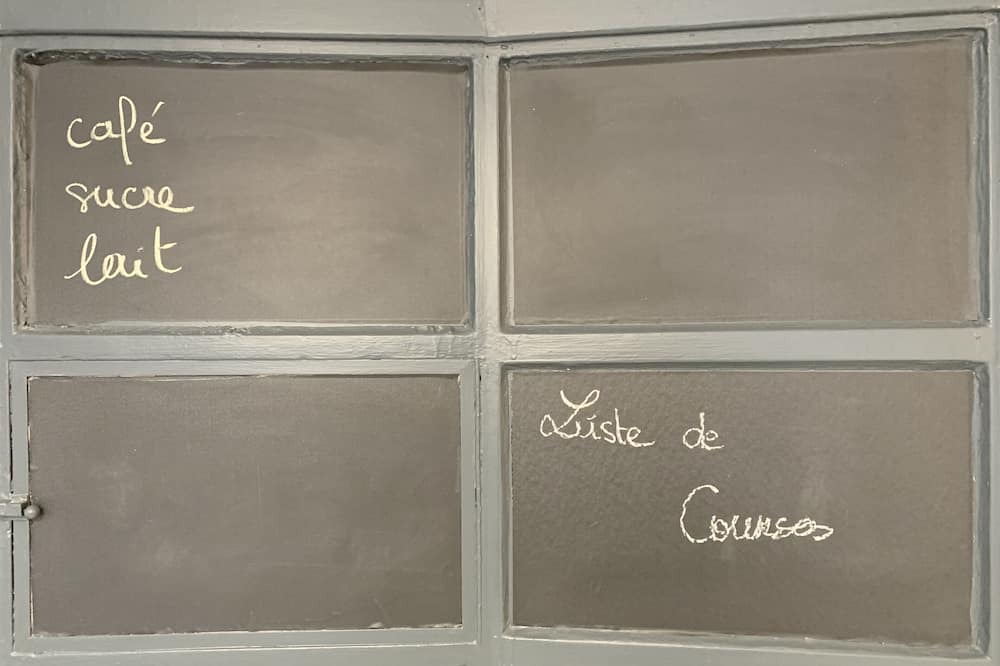 café
sucre
lait
Liste de
Courses